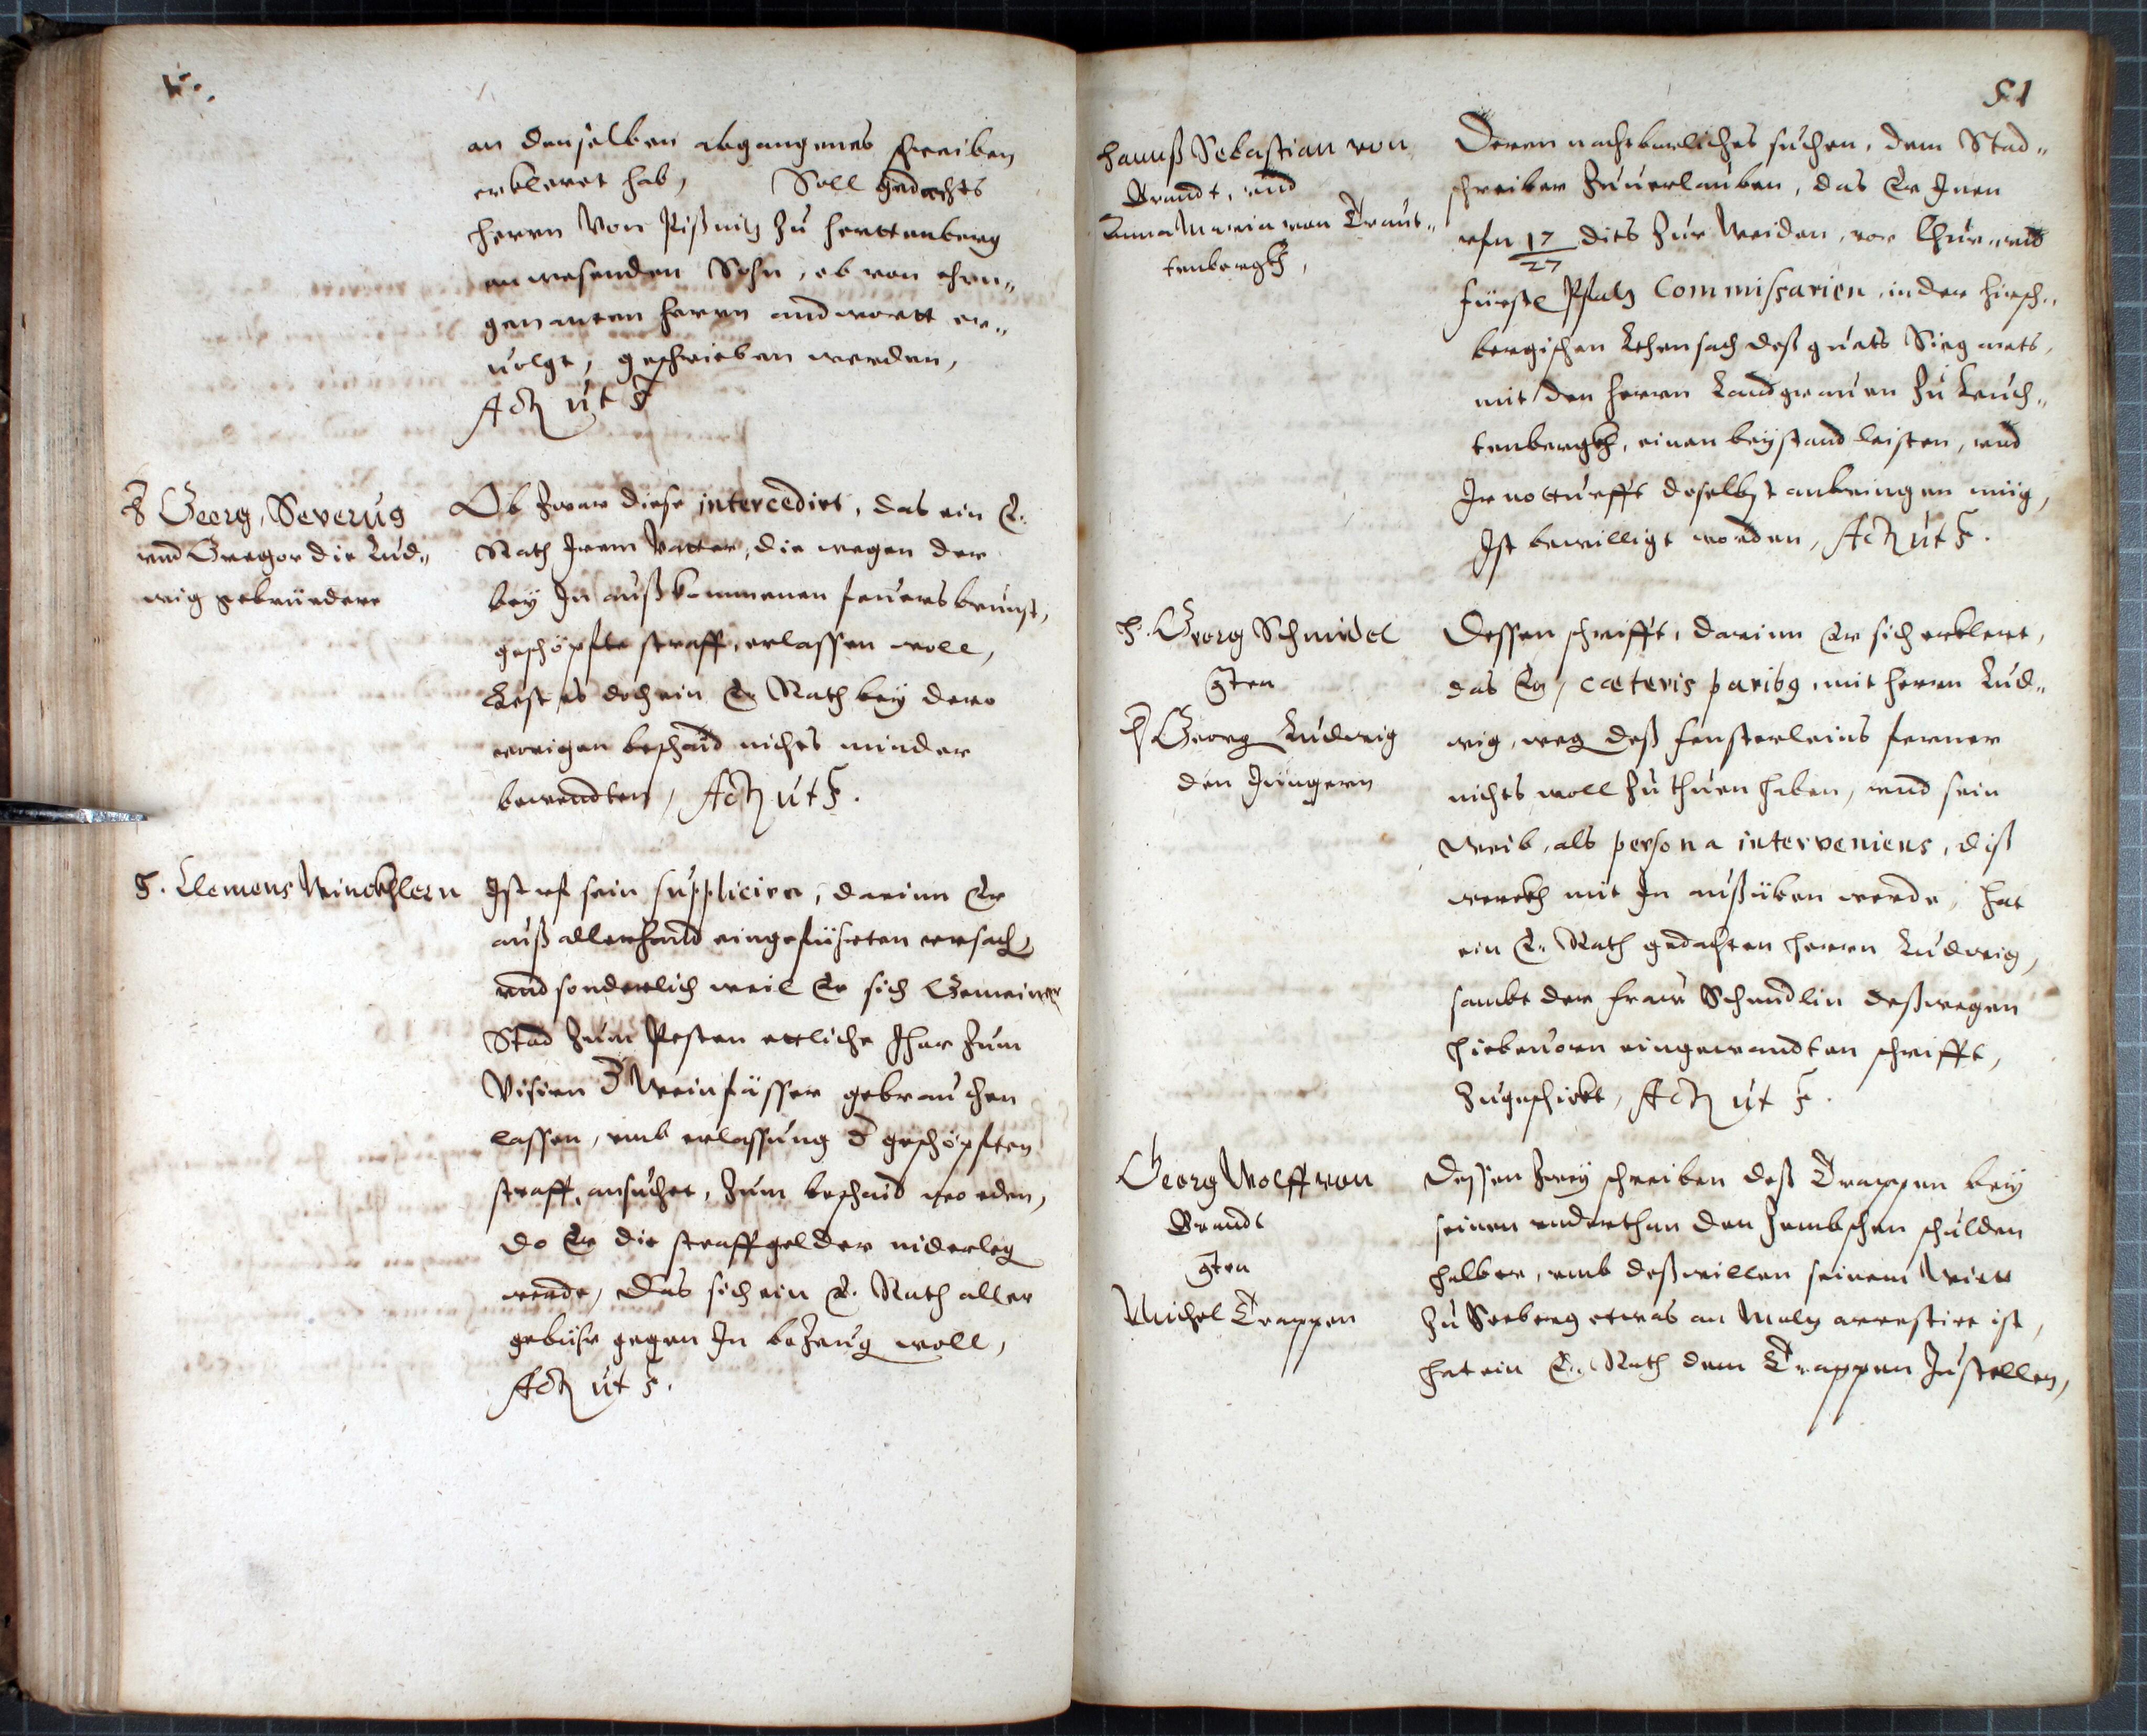 an denselben abgangenes schreiben
erkleret hab, Soll gedachts
herrn von Pißnitz zu herttenberg
anwesenden Sohn, ob von ehrn„
genanten herrn andwortt er„
volgt, geschrieben werden,
Act ut s
H Georg, Severus
vnd Gregor die Lud„
wig gebrüedere
Ob zwar diese intercedirt, das ein E.
Rath Irem Vatter, die wegen der
bey In außkommenen feuersbrunst,
geschöpfte straff, erlassen woll,
Lest es doch ein E. Rath bey dero
vorigen beschaid nichts minder
bewendten, Act ut s.
H. Clemens Winckhlern
Ist vf sein suppliciren, darinn Er
auß allerhand eingefüherten vrsach,
vnd sonderlich weil Er sich Gemeiner
Stad zum Pesten ettliche Jhar zum
Visirn d Weinfässer gebrauchen
lassen, vmb erlassung d geschöpften
straff, ansuchet, zum beschaid worden,
do Er die straffgelder niderleg
werde, Das sich ein E. Rath aller
gebühr gegen In bezeug woll,
Act ut s.
51
Hannß Sebastian von
Brandt, vnd
Anna Maria von Traut„
tenbergkh,
Deren nachtbarliches suchen, dem Stad„
schreiber zuuerlauben, das Er Inen
vfn 17/27 dits zur Weiden, vor Chur„ vnd
fürstl Pfaltz Commissarien, in der hirsch„
bergischen Lehensach deß guets
mit den herrn Landgrauen zu Leuch„
tenbergkh, einen beystand leisten, vnd
Ir notturfft doselbst anbringen müg,
Ist bewilligt worden, Act ut s.
H. Georg Schmidel
gten
H Georg Ludwig
den Jüngern
Dessen schrifft, darinn Er sich erklert,
das Er, cæteris paribg, mit herrn Lud„
wig, weg deß fensterleins ferner
nichts woll zu thuen haben, vnd sein
Weib, als persona interveniens, diß
werckh mit In außüben werde, hat
ein E. Rath gedachten herrn Ludwig,
sambt der frau Schmidlin deßwegen
hiebeuorn eingewandten schrifft,
zugeschickt, Act ut s.
Georg Wolff von
Brandt
gten
Michel Trappen
Dessen zwey schreiben deß Trappen bey
seinen vnderthan den schulden
halber, vmb deßwillen seinem Wirtt
zu Seeberg etwas an Maltz arrestirt ist,
hat ein E. Rath dem Trappen zustellen,